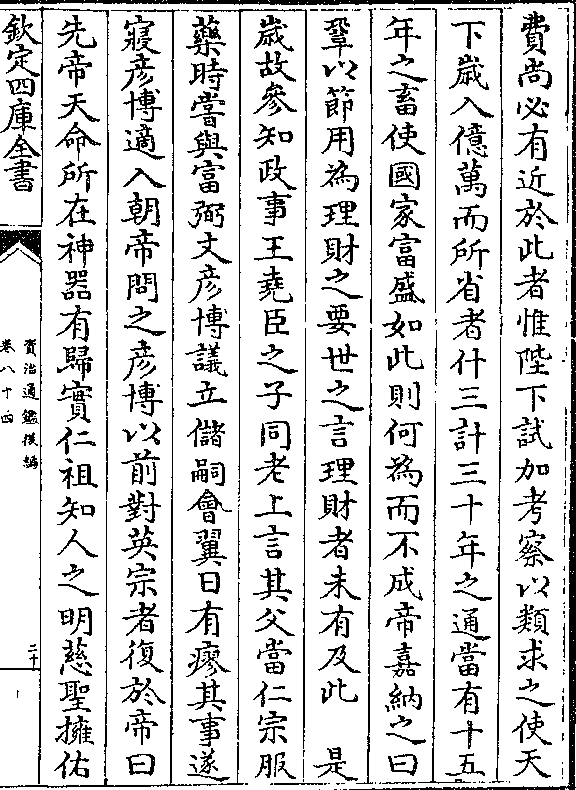 費尚必有近於此者惟陛下試加考察以類求之使天
下歲入億萬而所省者什三計三十年之通當有十五
年之畜使國家富盛如此則何為而不成帝嘉納之曰
鞏以節用為理財之要世之言理財者未有及此　是
歲故參知政事王堯臣之子同老上言其父當仁宗服
藥時嘗與富弼文彥博議立儲嗣會翼日有瘳其事遂
寢彥博適入朝帝問之彥博以前對英宗者復於帝曰
先帝天命所在神器有歸實仁祖知人之明慈聖擁佑
欽定四庫全書
資治通鑑後編
卷八十四
二十